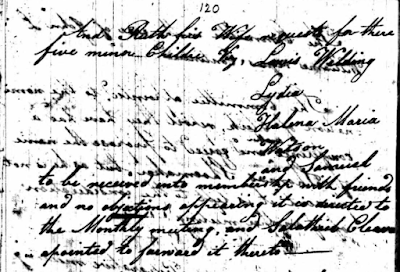 120
And Ruth his Wife requests for there
five minor Children Viz, Lewis Welding
Lydia
Halena Maria
Watson
and Samuel
to be received into membership with friends
and no objections appearing it is directed to
the Monthly meeting, and Salathiel Cleaver
apointed to forward it thereto